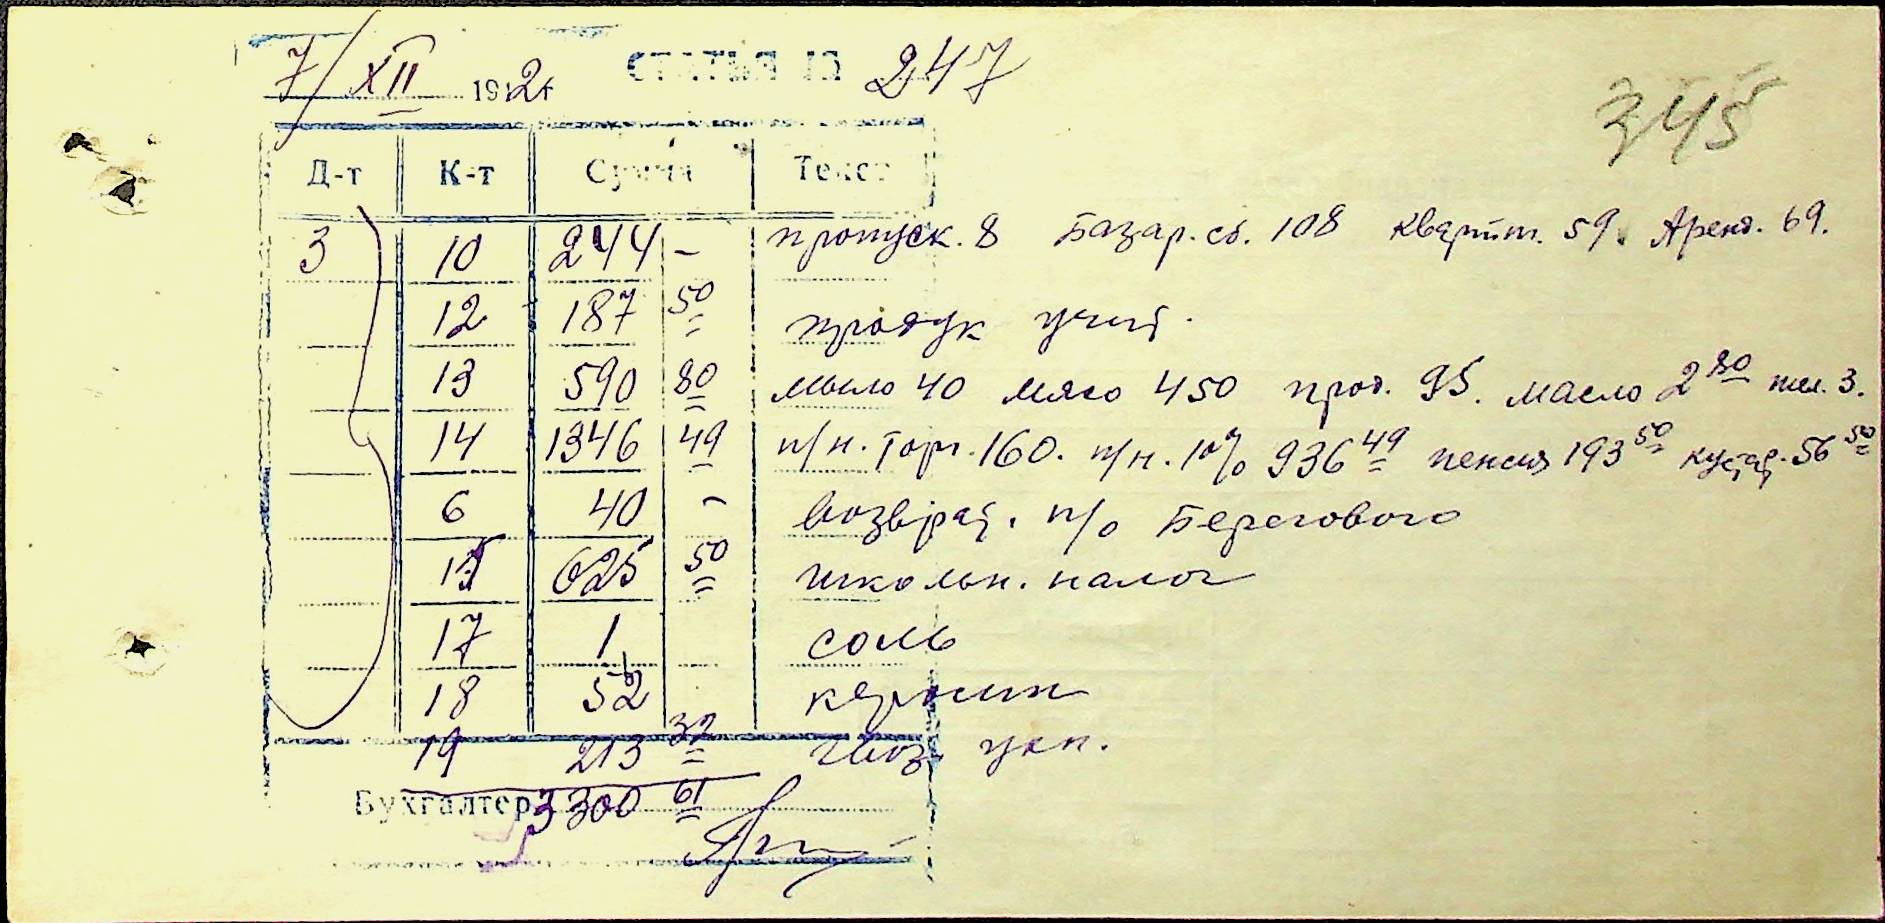 7/XII 1942 г СТАТЬЯ № 247
345
Д-т К-т Сумма Текст
3 10 244 – пропуск. 8 Базар. сб. 108 квартт. 59. Аренд. 69.
12 187 50 продук
13 590 80 мыло 40 мясо 450 прод. 95. масло 2 80 3.
14 1346 49 п/н. Торг. 160. п/н. 10% 936 49 пенсия 193 50 кустар. 56 50
6 40 – возврат. п/о Берегового
15 625 50 школьн. налог
17 1 соль
18 52 керосин
19 213 32
Бухгалтер 3300 61